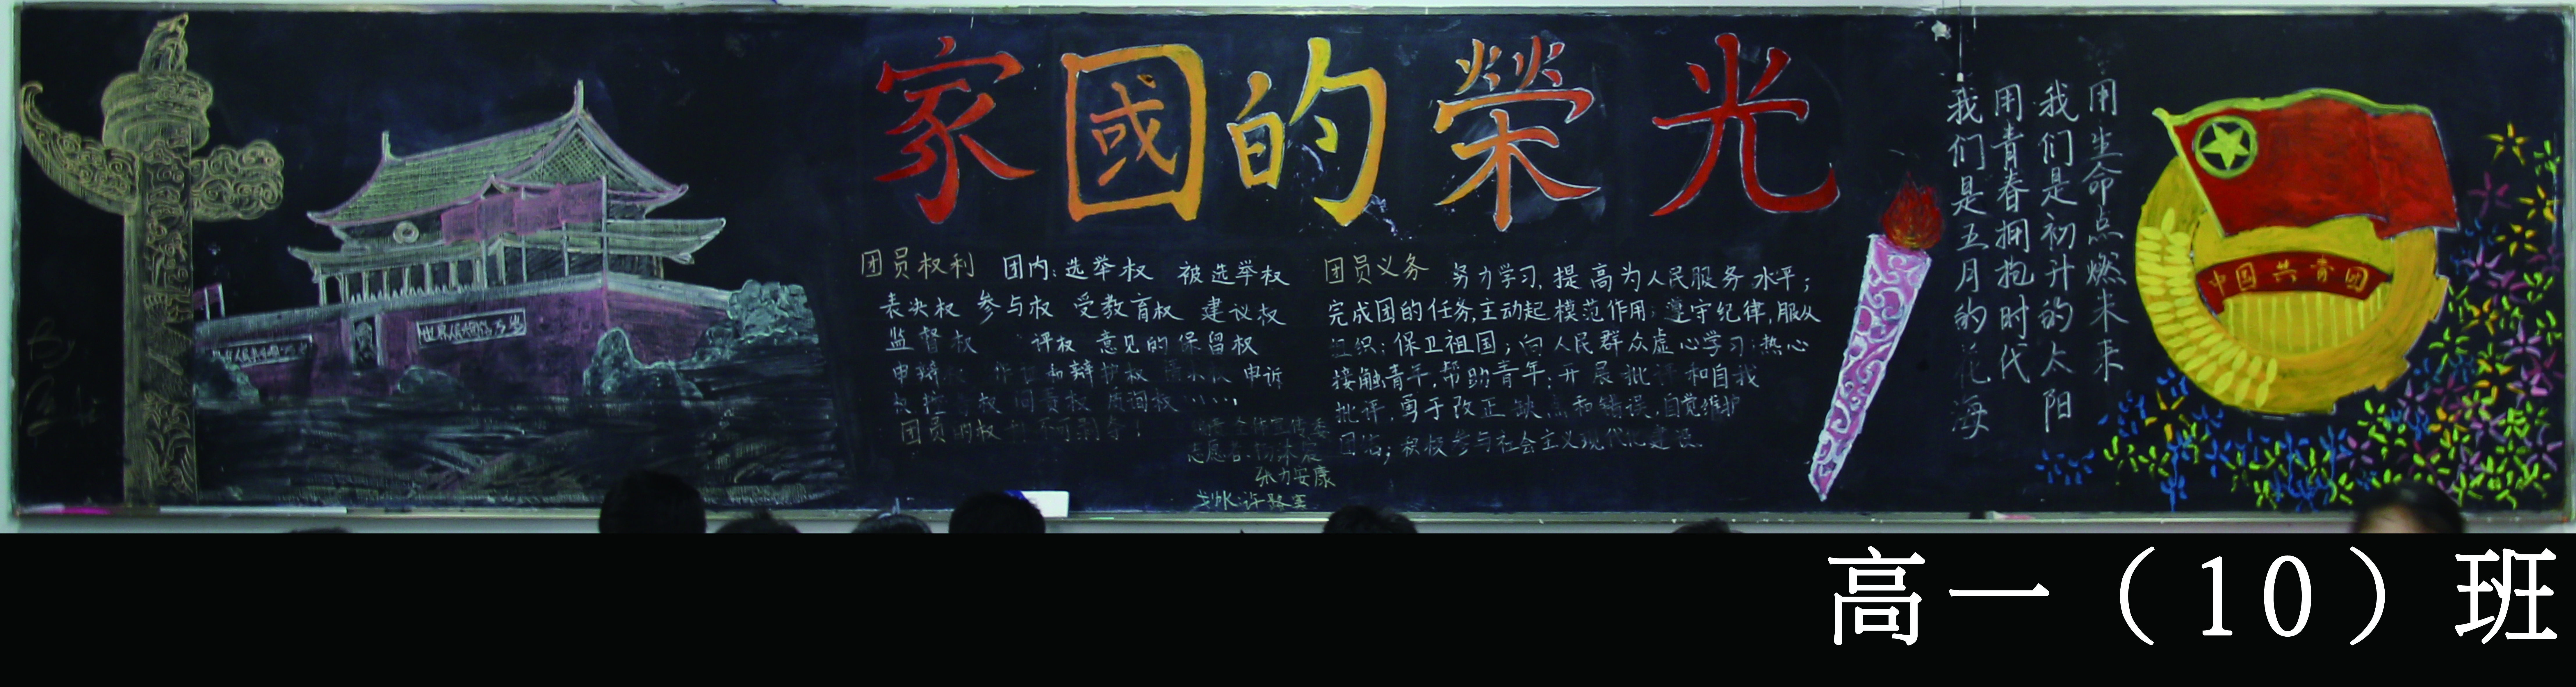 家國的榮光
团员权利 团内:选举权 被选举权
表决权 参与权 受教育权 建议权
监督权 评权 意见的保留权
申辩 辩护权 申诉
权 问责权 质询权……
团员的权 不可剥夺!
团员义务 努力学习,提高为人民服务水平;
完成团的任务,主动起模范作用;遵守纪律,服从
组织;保卫祖国;向人民群众虚心学习;热心
接触青年,帮助青年;开展批评和自我
批评,勇于改正缺点和错误,自觉维护
团结;积极参与社会主义现代化建设.
张力安康
用生命点燃未来
我们是初升的太阳
用青春拥抱时代
我们是五月的花海
中国共青团
By:
高一(10)班